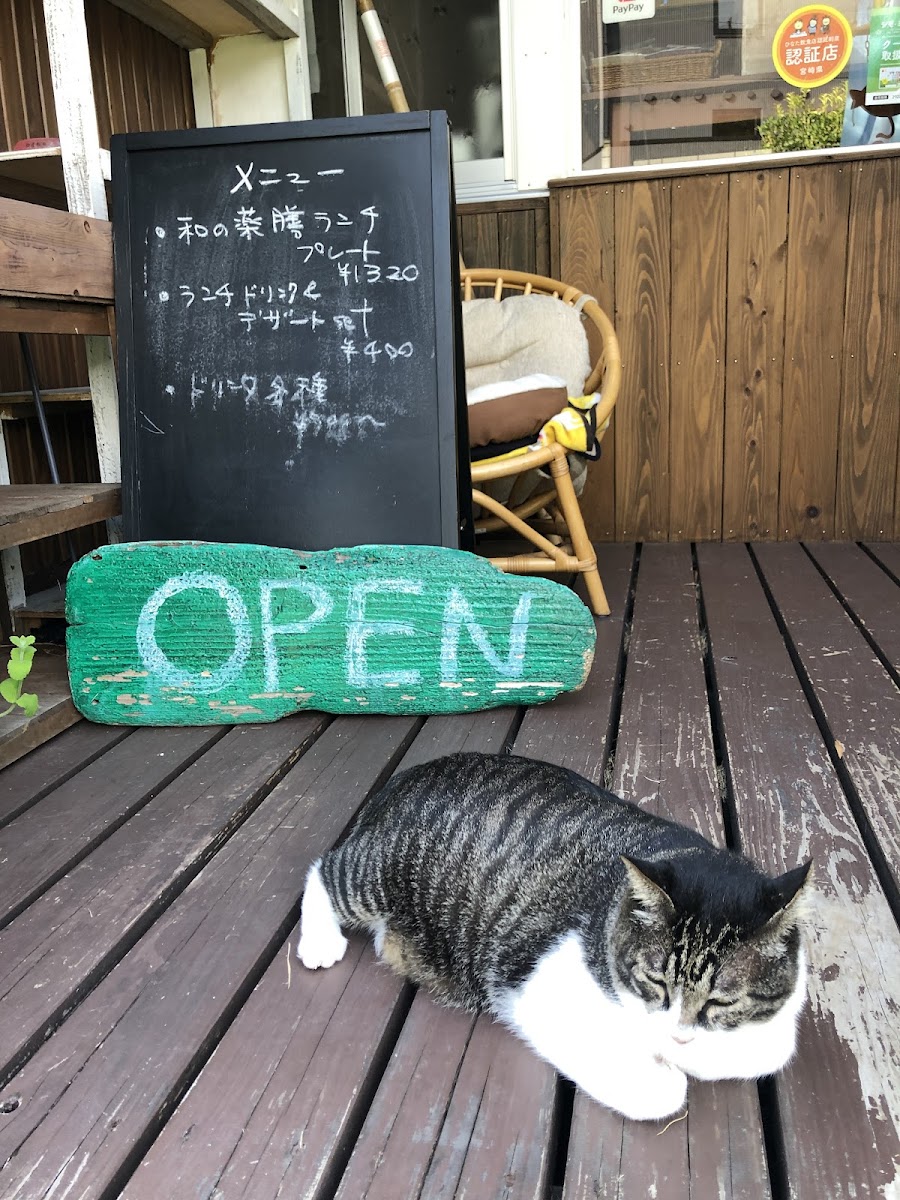 PayPay
認証店
宮崎県
メニュー
・和の薬膳ランチ
プレート
¥1320
・ランチドリンク&
デザート
¥400
・ドリンク各種
OPEN